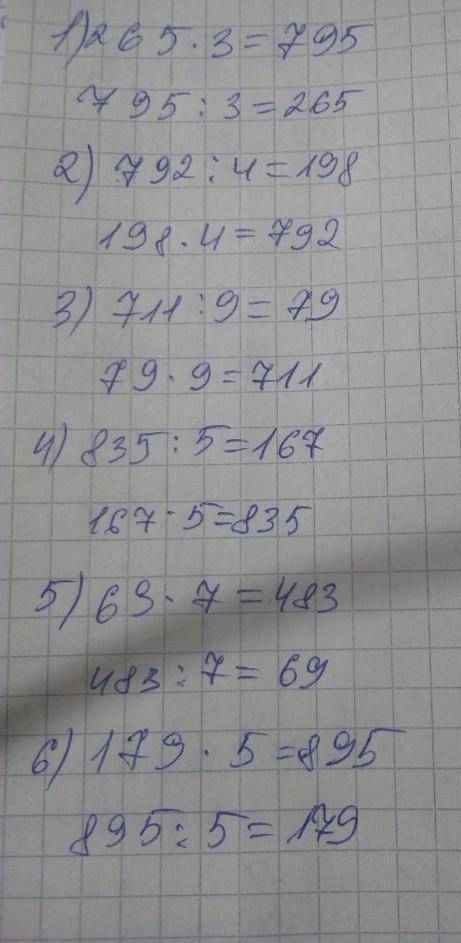 1) 265 · 3 = 795
795 : 3 = 265
2) 792 : 4 = 198
198 · 4 = 792
3) 711 : 9 = 79
79 · 9 = 711
4) 835 : 5 = 167
167 · 5 = 835
5) 69 · 7 = 483
483 : 7 = 69
6) 179 · 5 = 895
895 : 5 = 179